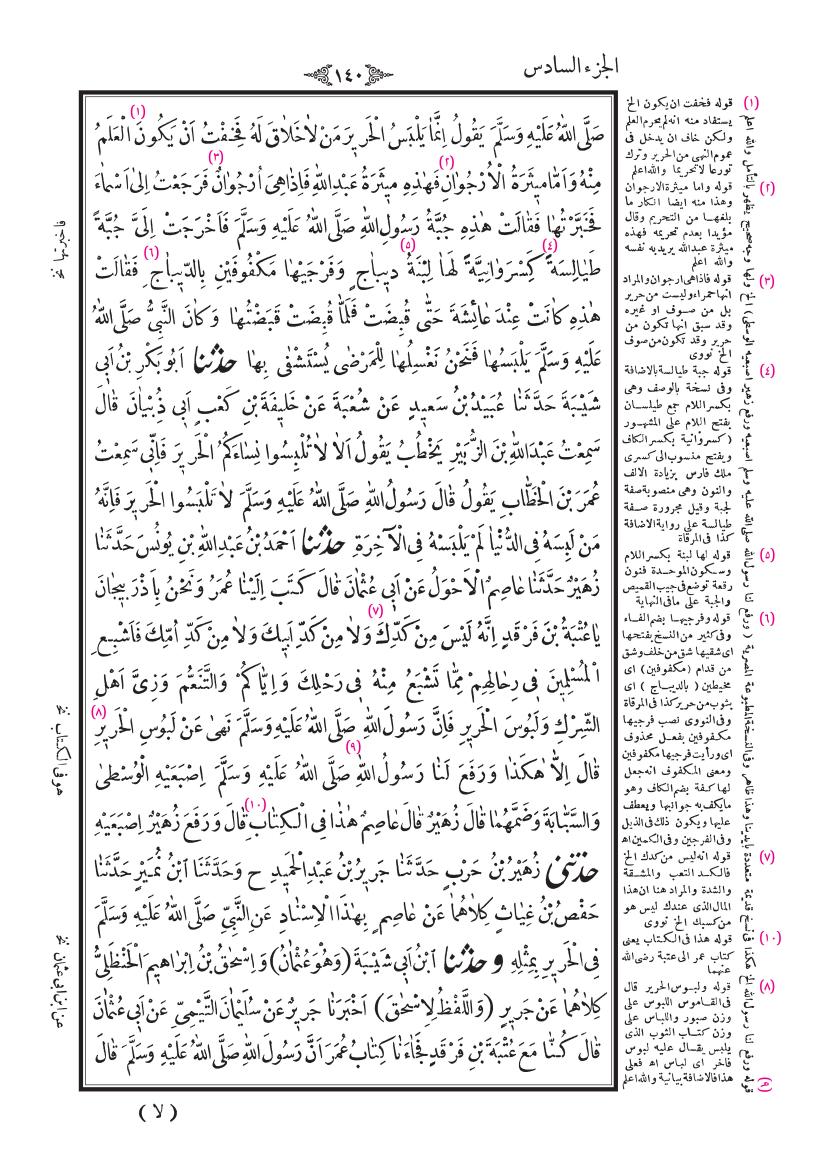 الجزء السادس
١٤٠
صَلَّى اللهُ عَلَيْهِ وَسَلَّمَ يَقُولُ اِنَّمَا يَلْبَسُ الْحَرِيرَ مَنْ لَاخَلَاقَ لَهُ فَخِفْتُ اَنْ يَكُونَ الْعَلَمُ (١)
مِنْهُ وَاَمَّا مِيثَرَةُ الْاُرْجُوَانِ (٢) فَهٰذِهِ مِيثَرَةُ عَبْدِاللهِ فَاِذَا هِىَ اُرْجُوَانٌ (٣) فَرَجَعْتُ اِلَى اَسْمَاءَ
فَخَبَّرْتُهَا فَقَالَتْ هٰذِهِ جُبَّةُ رَسُولِ اللهِ صَلَّى اللهُ عَلَيْهِ وَسَلَّمَ فَاَخْرَجَتْ اِلَىَّ جُبَّةً
طَيَالِسَةً (٤) كِسْرَوَانِيَّةً لَهَا لِبْنَةُ (٥) دِيبَاجٍ وَفَرْجَيْهَا مَكْفُوفَيْنِ بِالدِّيبَاجِ (٦) فَقَالَتْ
هٰذِهِ كَانَتْ عِنْدَ عَائِشَةَ حَتّٰى قُبِضَتْ فَلَمَّا قُبِضَتْ قَبَضْتُهَا وَكَانَ النَّبِىُّ صَلَّى اللهُ
عَلَيْهِ وَسَلَّمَ يَلْبَسُهَا فَنَحْنُ نَغْسِلُهَا لِلْمَرْضٰى يُسْتَشْفٰى بِهَا حدثنا اَبُو بَكْرِ بْنُ اَبِى
شَيْبَةَ حَدَّثَنَا عُبَيْدُ بْنُ سَعِيدٍ عَنْ شُعْبَةَ عَنْ خَلِيفَةَ بْنِ كَعْبٍ اَبِى ذُبْيَانَ قَالَ
سَمِعْتُ عَبْدَاللهِ بْنَ الزُّبَيْرِ يَخْطُبُ يَقُولُ اَلَا لَا تُلْبِسُوا نِسَاءَكُمُ الْحَرِيرَ فَاِنِّى سَمِعْتُ
عُمَرَ بْنَ الْخَطَّابِ يَقُولُ قَالَ رَسُولُ اللهِ صَلَّى اللهُ عَلَيْهِ وَسَلَّمَ لَا تَلْبَسُوا الْحَرِيرَ فَاِنَّهُ
مَنْ لَبِسَهُ فِى الدُّنْيَا لَمْ يَلْبَسْهُ فِى الْآخِرَةِ حدثنا اَحْمَدُ بْنُ عَبْدِاللهِ بْنِ يُونُسَ حَدَّثَنَا
زُهَيْرٌ حَدَّثَنَا عَاصِمٌ الْاَحْوَلُ عَنْ اَبِى عُثْمَانَ قَالَ كَتَبَ اِلَيْنَا عُمَرُ وَنَحْنُ بِاَذْرَبِيجَانَ
يَا عُتْبَةُ بْنَ فَرْقَدٍ اِنَّهُ لَيْسَ مِنْ كَدِّكَ (٧) وَلَا مِنْ كَدِّ اَبِيكَ وَلَا مِنْ كَدِّ اُمِّكَ فَاَشْبِعِ
الْمُسْلِمِينَ فِى رِحَالِهِمْ مِمَّا تَشْبَعُ مِنْهُ فِى رَحْلِكَ وَاِيَّاكُمْ وَالتَّنَعُّمَ وَزِىَّ اَهْلِ
الشِّرْكِ وَلَبُوسَ الْحَرِيرِ فَاِنَّ رَسُولَ اللهِ صَلَّى اللهُ عَلَيْهِ وَسَلَّمَ نَهٰى عَنْ لَبُوسِ الْحَرِيرِ (٨)
قَالَ اِلَّا هٰكَذَا وَرَفَعَ لَنَا رَسُولُ اللهِ (٩) صَلَّى اللهُ عَلَيْهِ وَسَلَّمَ اِصْبَعَيْهِ الْوُسْطٰى
وَالسَّبَّابَةَ وَضَمَّهُمَا قَالَ زُهَيْرٌ قَالَ عَاصِمٌ هٰذَا فِى الْكِتَابِ (١٠) قَالَ وَرَفَعَ زُهَيْرٌ اِصْبَعَيْهِ
حدثنى زُهَيْرُ بْنُ حَرْبٍ حَدَّثَنَا جَرِيرُ بْنُ عَبْدِ الْحَمِيدِ ح وَحَدَّثَنَا ابْنُ نُمَيْرٍ حَدَّثَنَا
حَفْصُ بْنُ غِيَاثٍ كِلَاهُمَا عَنْ عَاصِمٍ بِهٰذَا الْاِسْنَادِ عَنِ النَّبِىِّ صَلَّى اللهُ عَلَيْهِ وَسَلَّمَ
فِى الْحَرِيرِ بِمِثْلِهِ وحدثنا ابْنُ اَبِى شَيْبَةَ (وَهُوَ عُثْمَانُ) وَاِسْحٰقُ بْنُ اِبْرَاهِيمَ الْحَنْظَلِىُّ
كِلَاهُمَا عَنْ جَرِيرٍ (وَاللَّفْظُ لِاِسْحٰقَ) اَخْبَرَنَا جَرِيرٌ عَنْ سُلَيْمَانَ التَّيْمِىِّ عَنْ اَبِى عُثْمَانَ
قَالَ كُنَّا مَعَ عُتْبَةَ بْنِ فَرْقَدٍ فَجَاءَنَا كِتَابُ عُمَرَ اَنَّ رَسُولَ اللهِ صَلَّى اللهُ عَلَيْهِ وَسَلَّمَ قَالَ
(لا)
(١) قوله فخفت ان يكون الخ
يستفاد منه انه لم يحرم العلم
ولكن خاف ان يدخل فى
عموم النهى من الحرير وترك
تورعا لا تحريما والله اعلم
(٢) قوله واما ميثرة الارجوان
وهذا منه ايضا انكار ما
بلغها من التحريم وقال
مؤيدا بعدم تحريمه فهذه
ميثرة عبدالله يريد به نفسه
والله اعلم
(٣) قوله فاذا هى ارجوان والمراد
انها حمراء وليست من حرير
بل من صوف او غيره
وقد سبق انها تكون من
حرير وقد تكون من صوف
الخ نووى
(٤) قوله جبة طيالسة بالاضافة
وفى نسخة بالوصف وهى
بكسر اللام جمع طيلسان
بفتح اللام على المشهور
(كسروانية بكسر الكاف
ويفتح منسوب الى كسرى
ملك فارس بزيادة الالف
والنون وهى منصوبة صفة
لجبة وقيل مجرورة صفة
طيالسة على رواية الاضافة
كذا فى المرقاة
(٥) قوله لها لبنة بكسر اللام
وسكون الموحدة فنون
رقعة توضع فى جيب القميص
والجبة على ما فى النهاية
(٦) قوله وفرجيها بضم الفاء
وفى كثير من النسخ بفتحها
اى شقيها شق من خلف وشق
من قدام (مكفوفين) اى
مخيطين (بالديباج) اى
بثوب من حرير كذا فى المرقاة
وفى النووى نصب فرجيها
مكفوفين بفعل محذوف
اى ورأيت فرجيها مكفوفين
ومعنى المكفوف انه جعل
لها كفة بضم الكاف وهو
ما يكف به جوانبها ويعطف
عليها ويكون ذلك فى الذيل
وفى الفرجين وفى الكمين اه
(٧) قوله انه ليس من كدك الخ
فالكد التعب والمشقة
والشدة والمراد هنا ان هذا
المال الذى عندك ليس هو
من كسبك الخ نووى
(١٠) قوله هذا فى الكتاب يعنى
كتاب عمر الى عتبة رضى الله
عنهما
(٨) قوله ولبوس الحرير قال
فى القاموس اللبوس على
وزن صبور واللباس على
وزن كتاب الثوب الذى
يلبس يقال عليه لبوس
فاخر اى لباس اه فعلى
هذا فالاضافة بيانية والله اعلم
(٩) قوله ورفع لنا رسول الله الخ هكذا فى نسخ قديمة متعددة بايدينا وهذا ظاهر وفى النسخة المطبوعة المصرية (ورفع لنا رسول الله صلى الله عليه وسلم اصبعيه ورفع زهير اصبعيه الوسطى) الخ ولها وجه صحيح يظهر بالتأمل والله اعلم
هو فى الكتاب نخ
عن ابن ابى عثمان نخ